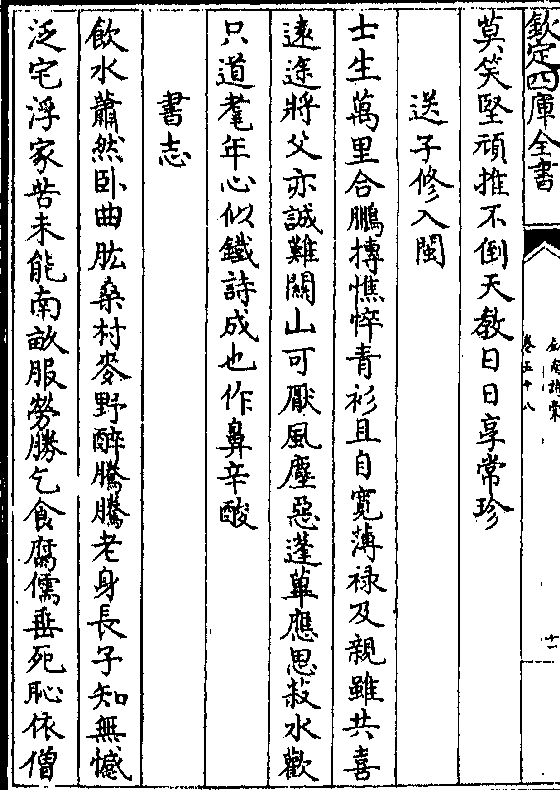 欽定四庫全書
卷五十八
十一
莫笑堅頑推不倒天教日日享常珍
送子修入閩
士生萬里合鵬摶憔悴青衫且自寛薄禄及親雖共喜
逺途將父亦誠難關山可厭風塵惡蓬蓽應思菽水歡
只道耄年心似鐵詩成也作鼻辛酸
書志
飲水蕭然卧曲肱桑村麥野醉騰騰老身長子知無憾
泛宅浮家苦未能南畝服勞勝乞食腐儒垂死恥依僧